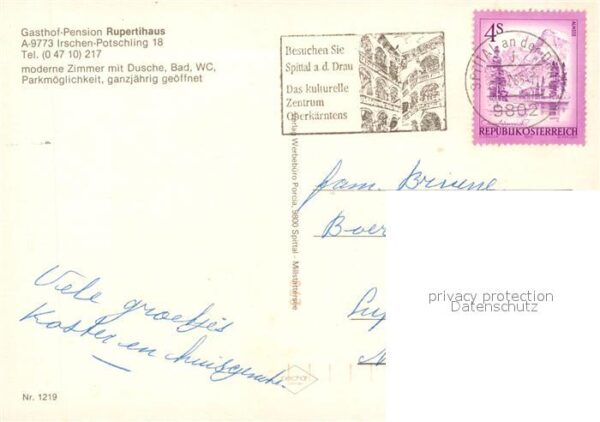 Gasthof-Pension Rupertihaus
A-9773 Irschen-Potschling 18
Tel. (0 47 10) 217
moderne Zimmer mit Dusche, Bad, WC,
Parkmöglichkeit, ganzjährig geöffnet
Besuchen Sie
Spittal a.d. Drau
Das kulturelle
Zentrum
Oberkärntens
4s
SPITTAL an der
9802
REPUBLIK ÖSTERREICH
Werbebüro Porcia, 9800 Spittal - Millstättersee
fam. Bruune
Boer
privacy protection
Datenschutz
Vele groetjes
Koster en huisgenote.
Nr. 1219